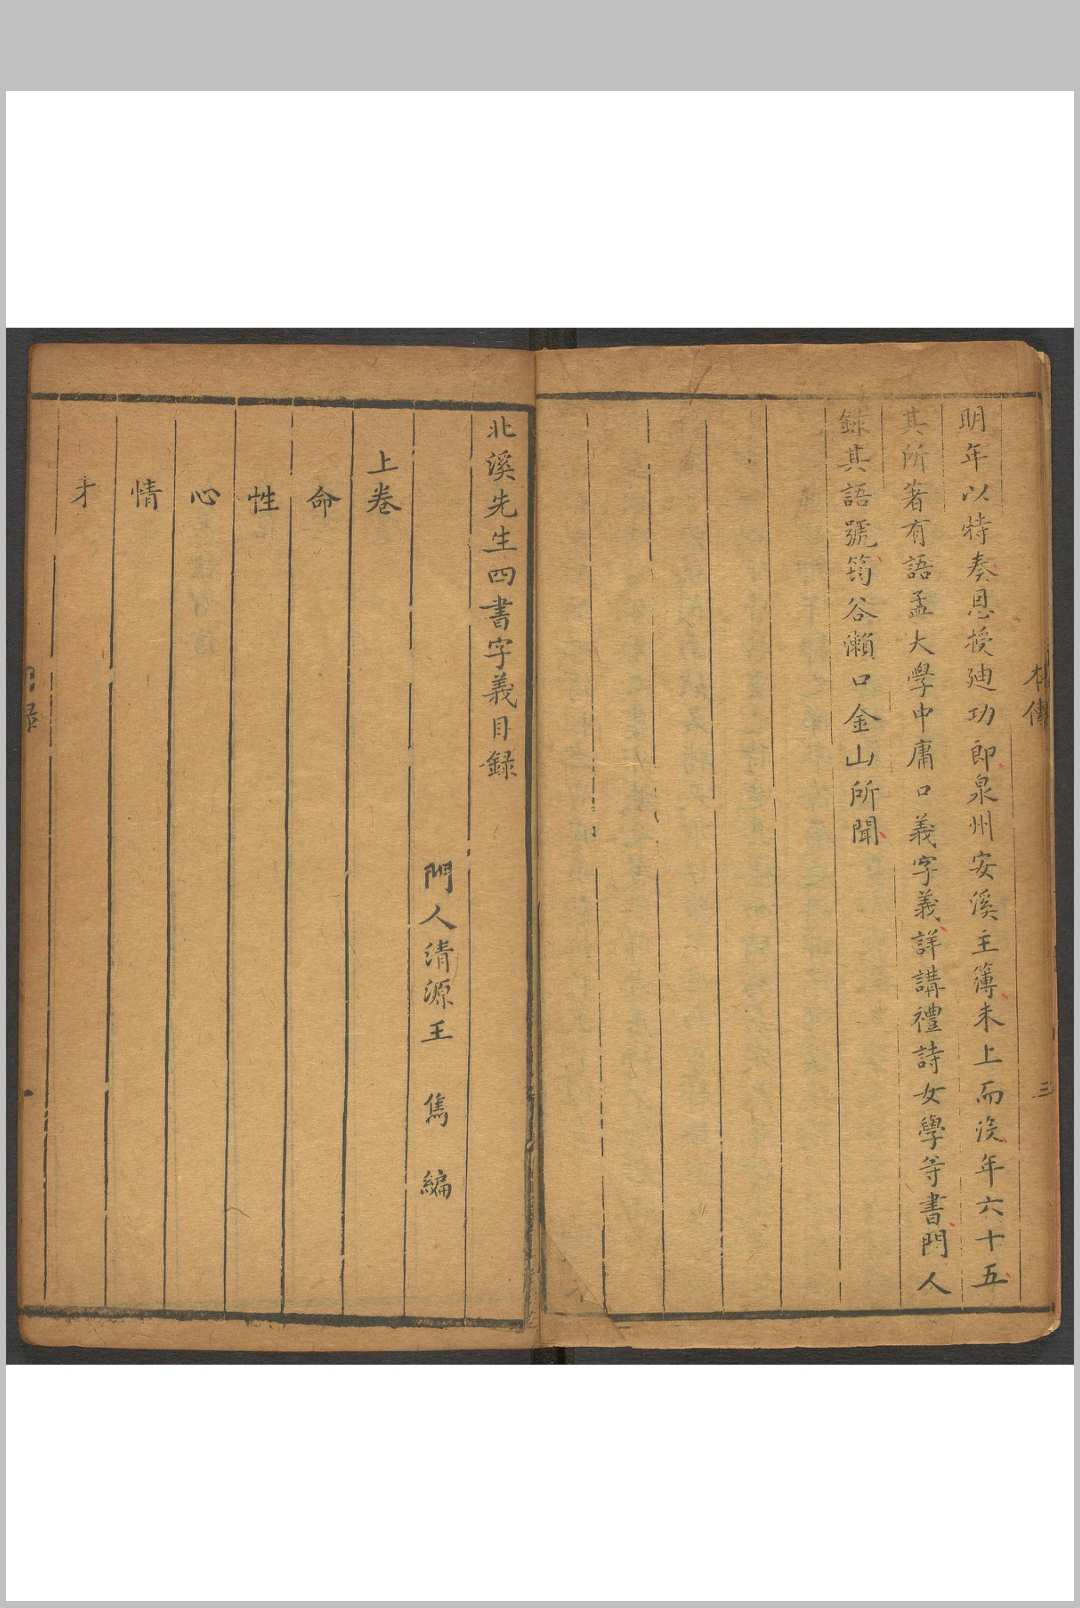 本傳
三
明年以特奏恩授廸功郎泉州安溪主簿未上而沒年六十五
其所著有語孟大學中庸口義字義詳講禮詩女學等書門人
錄其語號筠谷瀨口金山所聞
北溪先生四書字義目錄
門人清源王雋編
上卷
命
性
心
情
才
目錄